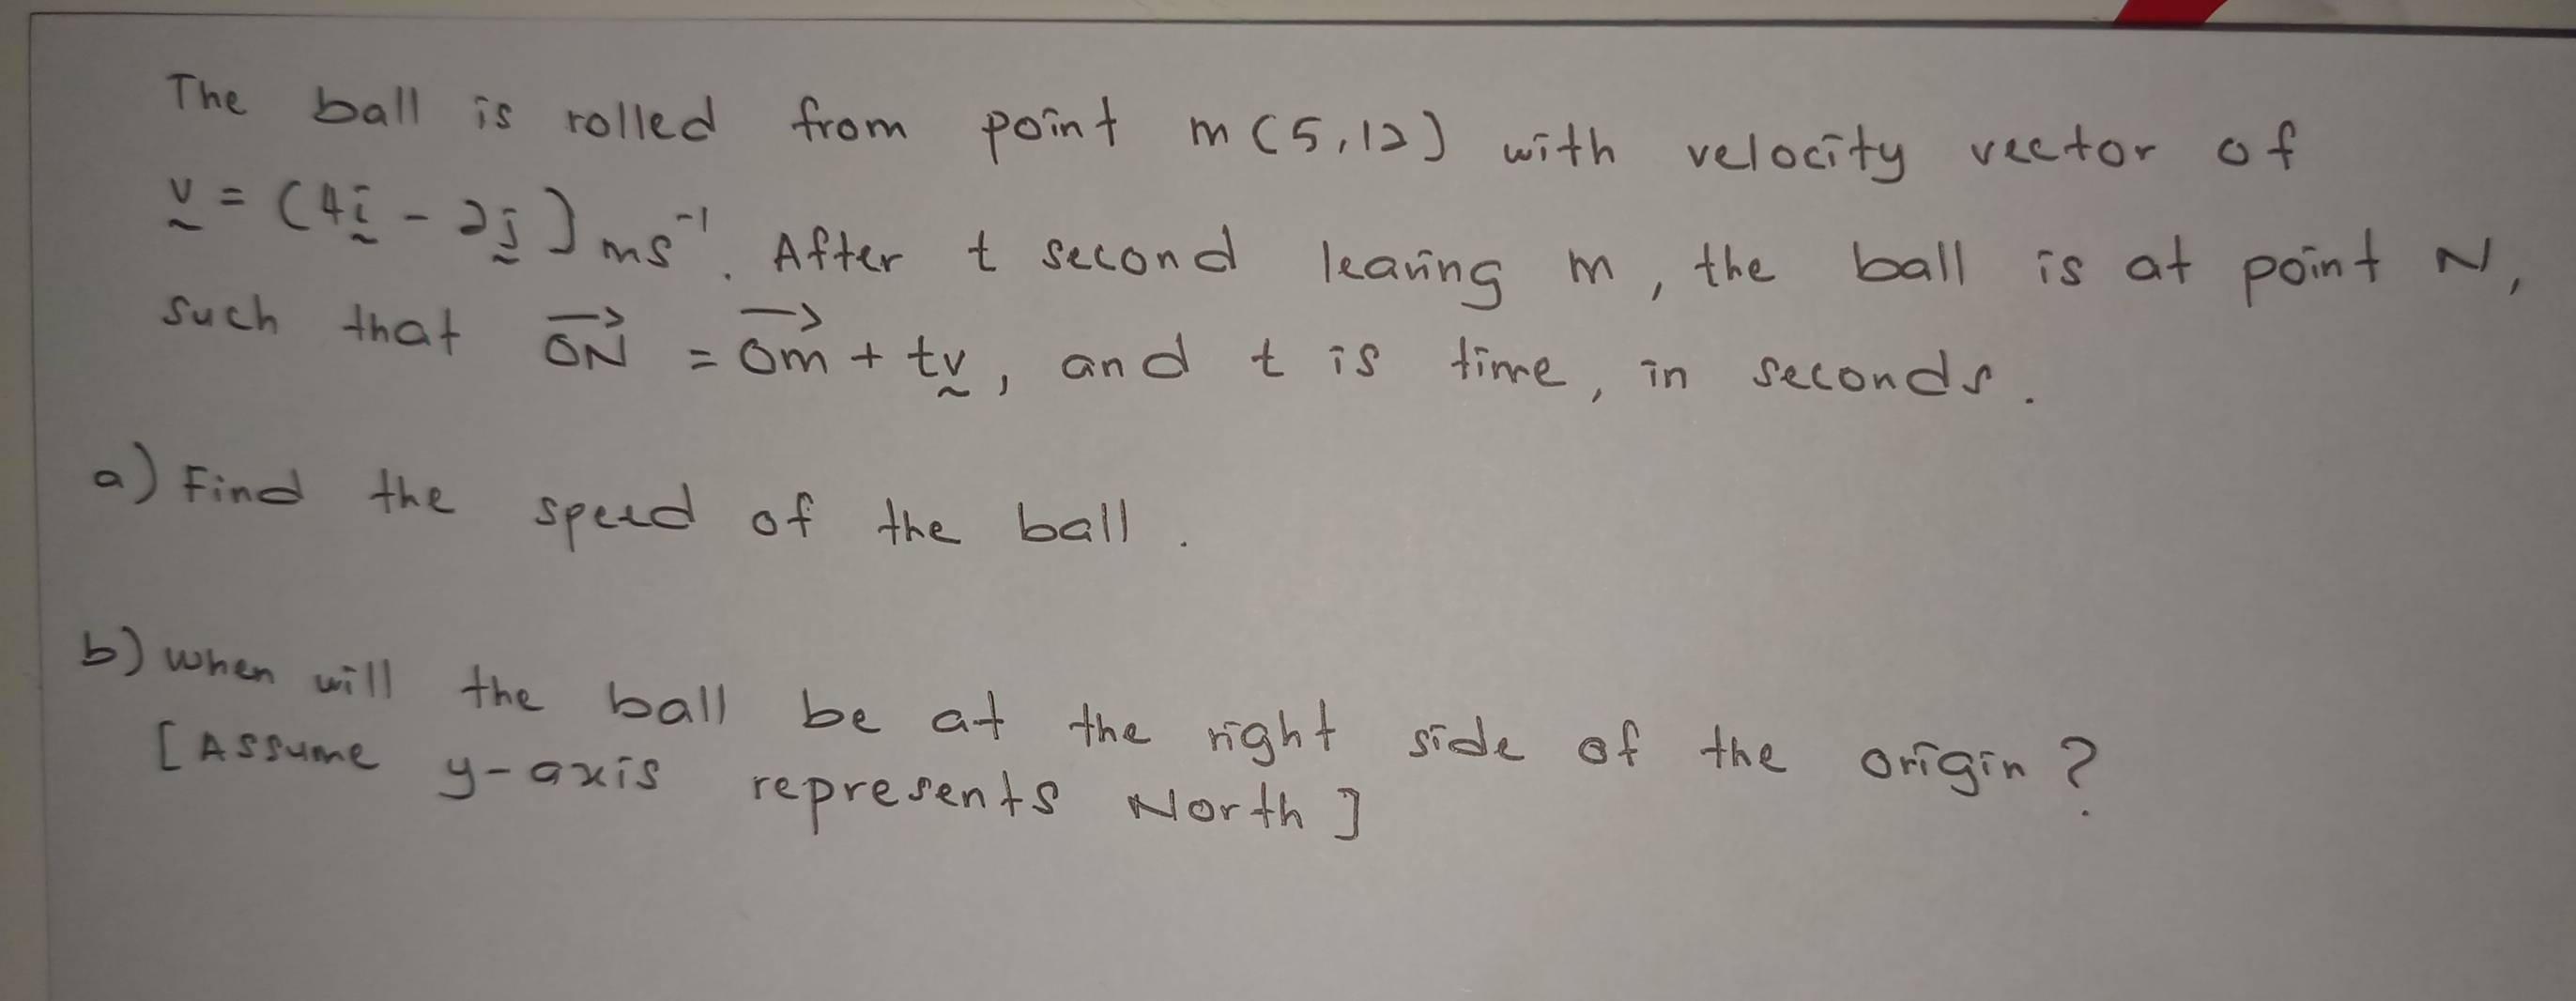 The ball is rolled from point m(5,12) with velocity vector of
v = (4i - 2j) ms⁻¹. After t second leaving m, the ball is at point N,
such that ON = Om + tv, and t is time, in seconds.
a) Find the speed of the ball.
b) When will the ball be at the right side of the origin?
[Assume y-axis represents North]